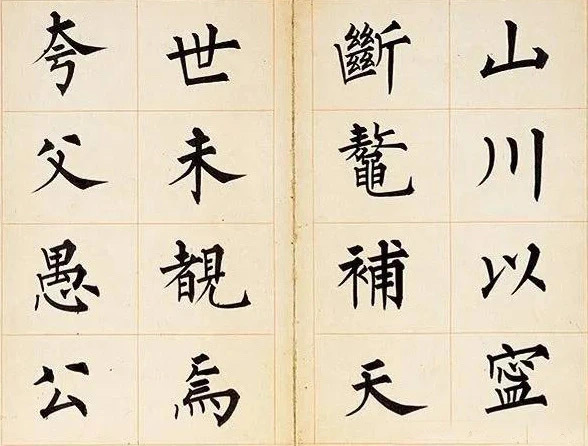 山川以寧
斷鼇補天
世未覩焉
夸父愚公